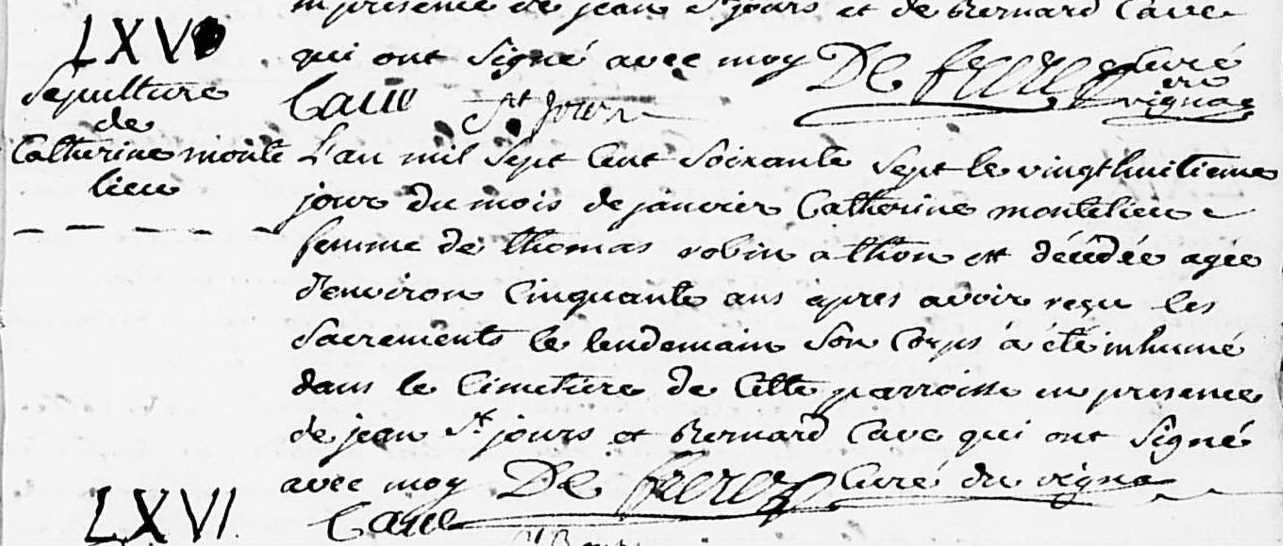 en presence de jean St jours et de Bernard Cave
LXV
qui ont signé avec moy De ferrer curé
Sepulture
de
Catherine monte
lieu
Cave St Jours
vignac
L'an mil sept cent soixante sept le vingt huitieme
jour du mois de janvier Catherine montelieu
femme de thomas robin a thon est décédée agée
d'environ cinquante ans apres avoir reçu les
sacrements le lendemain son corps a été inhumé
dans le cimetiere de cette parroisse en presence
de jean St jours et Bernard Cave qui ont signé
avec moy De ferrer curé du vignac
LXVI
Cave